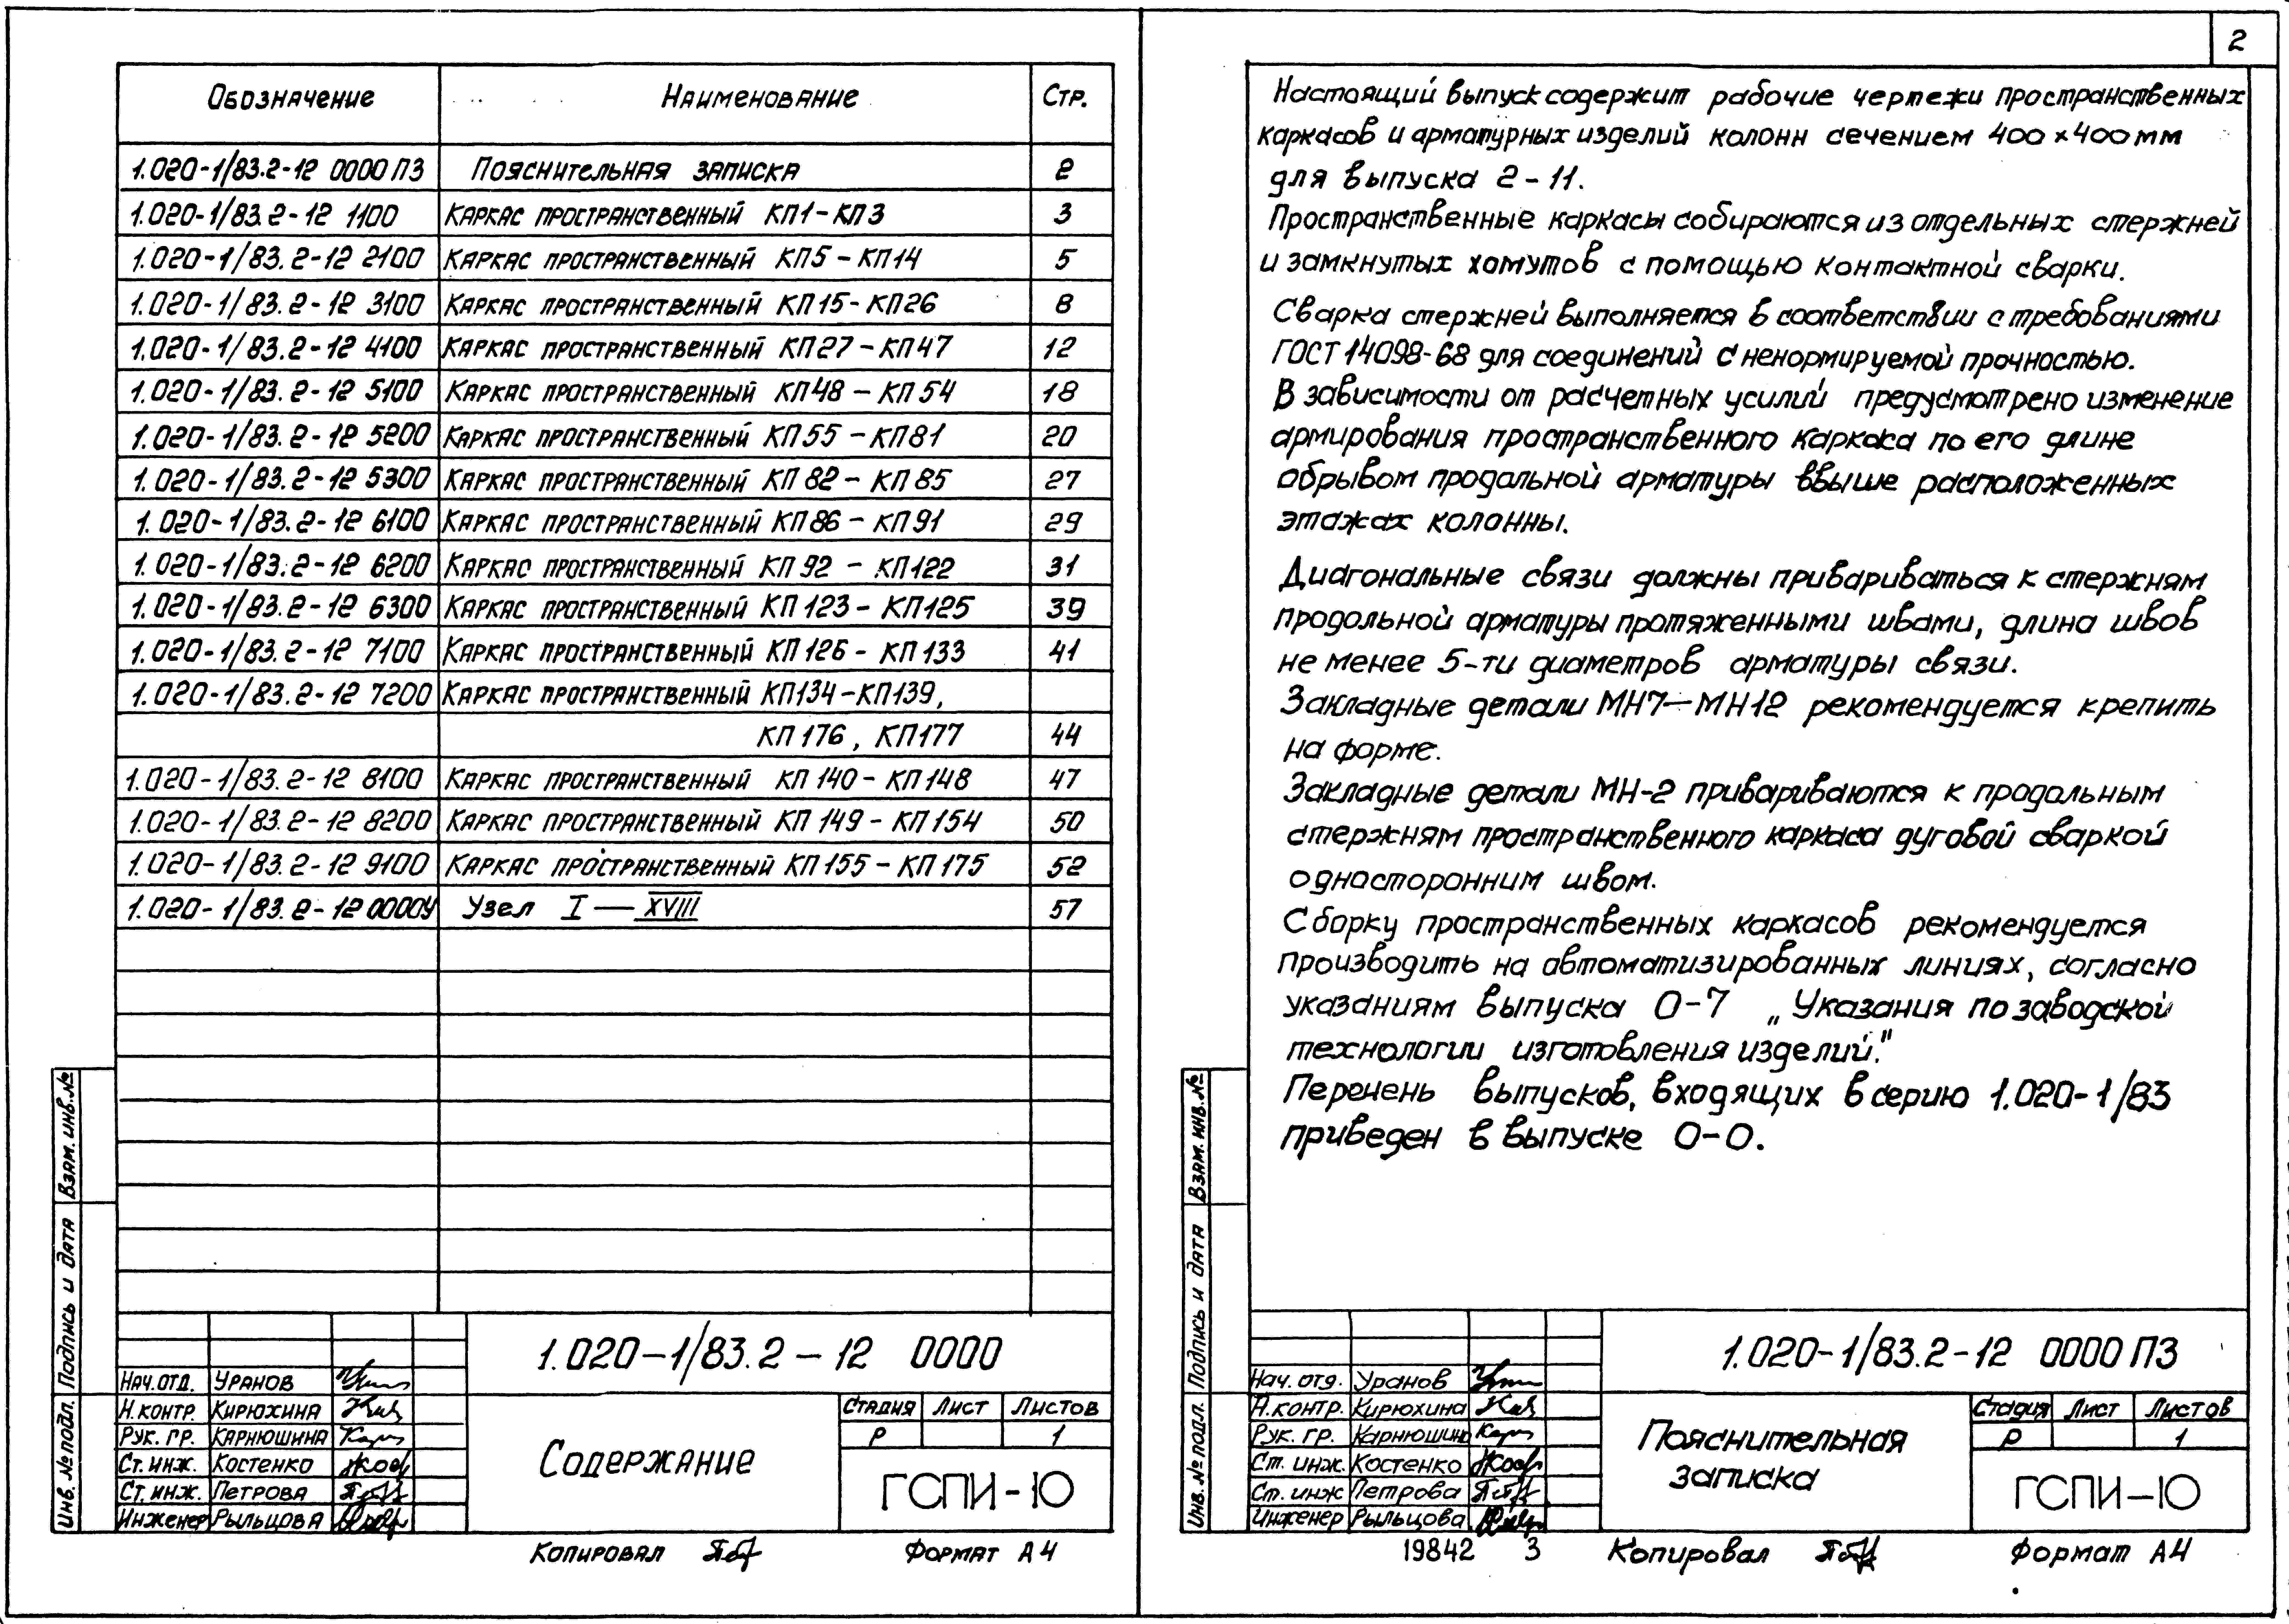 Обозначение Наименование Стр.
1.020-1/83.2-12 0000 ПЗ Пояснительная записка 2
1.020-1/83.2-12 1100 Каркас пространственный КП1-КП3 3
1.020-1/83.2-12 2100 Каркас пространственный КП5-КП14 5
1.020-1/83.2-12 3100 Каркас пространственный КП15-КП26 8
1.020-1/83.2-12 4100 Каркас пространственный КП27-КП47 12
1.020-1/83.2-12 5100 Каркас пространственный КП48-КП54 18
1.020-1/83.2-12 5200 Каркас пространственный КП55-КП81 20
1.020-1/83.2-12 5300 Каркас пространственный КП82-КП85 27
1.020-1/83.2-12 6100 Каркас пространственный КП86-КП91 29
1.020-1/83.2-12 6200 Каркас пространственный КП92-КП122 31
1.020-1/83.2-12 6300 Каркас пространственный КП123-КП125 39
1.020-1/83.2-12 7100 Каркас пространственный КП126-КП133 41
1.020-1/83.2-12 7200 Каркас пространственный КП134-КП139,
КП176, КП177 44
1.020-1/83.2-12 8100 Каркас пространственный КП140-КП148 47
1.020-1/83.2-12 8200 Каркас пространственный КП149-КП154 50
1.020-1/83.2-12 9100 Каркас пространственный КП155-КП175 52
1.020-1/83.2-12 0000У Узел I — XVIII 57
Взам. инв. №
Подпись и дата
Инв. № подл.
1.020-1/83.2-12 0000
Нач. отд. Уранов
Н. контр. Кирюхина
Рук. гр. Карнюшина
Ст. инж. Костенко
Ст. инж. Петрова
Инженер Рыльцова
Содержание
Стадия Лист Листов
Р 1
ГСПИ-10
Копировал Формат А4
2
Настоящий выпуск содержит рабочие чертежи пространственных
каркасов и арматурных изделий колонн сечением 400×400 мм
для выпуска 2-11.
Пространственные каркасы собираются из отдельных стержней
и замкнутых хомутов с помощью контактной сварки.
Сварка стержней выполняется в соответствии с требованиями
ГОСТ 14098-68 для соединений с ненормируемой прочностью.
В зависимости от расчетных усилий предусмотрено изменение
армирования пространственного каркаса по его длине
обрывом продольной арматуры ввыше расположенных
этажах колонны.
Диагональные связи должны привариваться к стержням
продольной арматуры протяженными швами, длина швов
не менее 5-ти диаметров арматуры связи.
Закладные детали МН7—МН12 рекомендуется крепить
на форме.
Закладные детали МН-2 привариваются к продольным
стержням пространственного каркаса дуговой сваркой
односторонним швом.
Сборку пространственных каркасов рекомендуется
производить на автоматизированных линиях, согласно
указаниям выпуска 0-7 „Указания по заводской
технологии изготовления изделий."
Перечень выпусков, входящих в серию 1.020-1/83
приведен в выпуске 0-0.
Взам. инв. №
Подпись и дата
Инв. № подл.
1.020-1/83.2-12 0000 ПЗ
Нач. отд. Уранов
Н. контр. Кирюхина
Рук. гр. Карнюшина
Ст. инж. Костенко
Ст. инж Петрова
Инженер Рыльцова
Пояснительная
записка
Стадия Лист Листов
Р 1
ГСПИ-10
19842 3 Копировал Формат А4